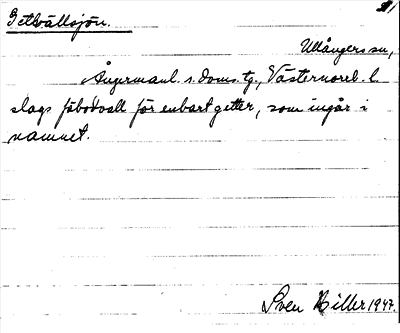 Getvallsjön.
Ullångers sn,
Ångermanl. s. doms. tg., Västernorrl. l.
slags fäbodvall för enbart getter, som ingår i
namnet.
Sven Hiller 1947.